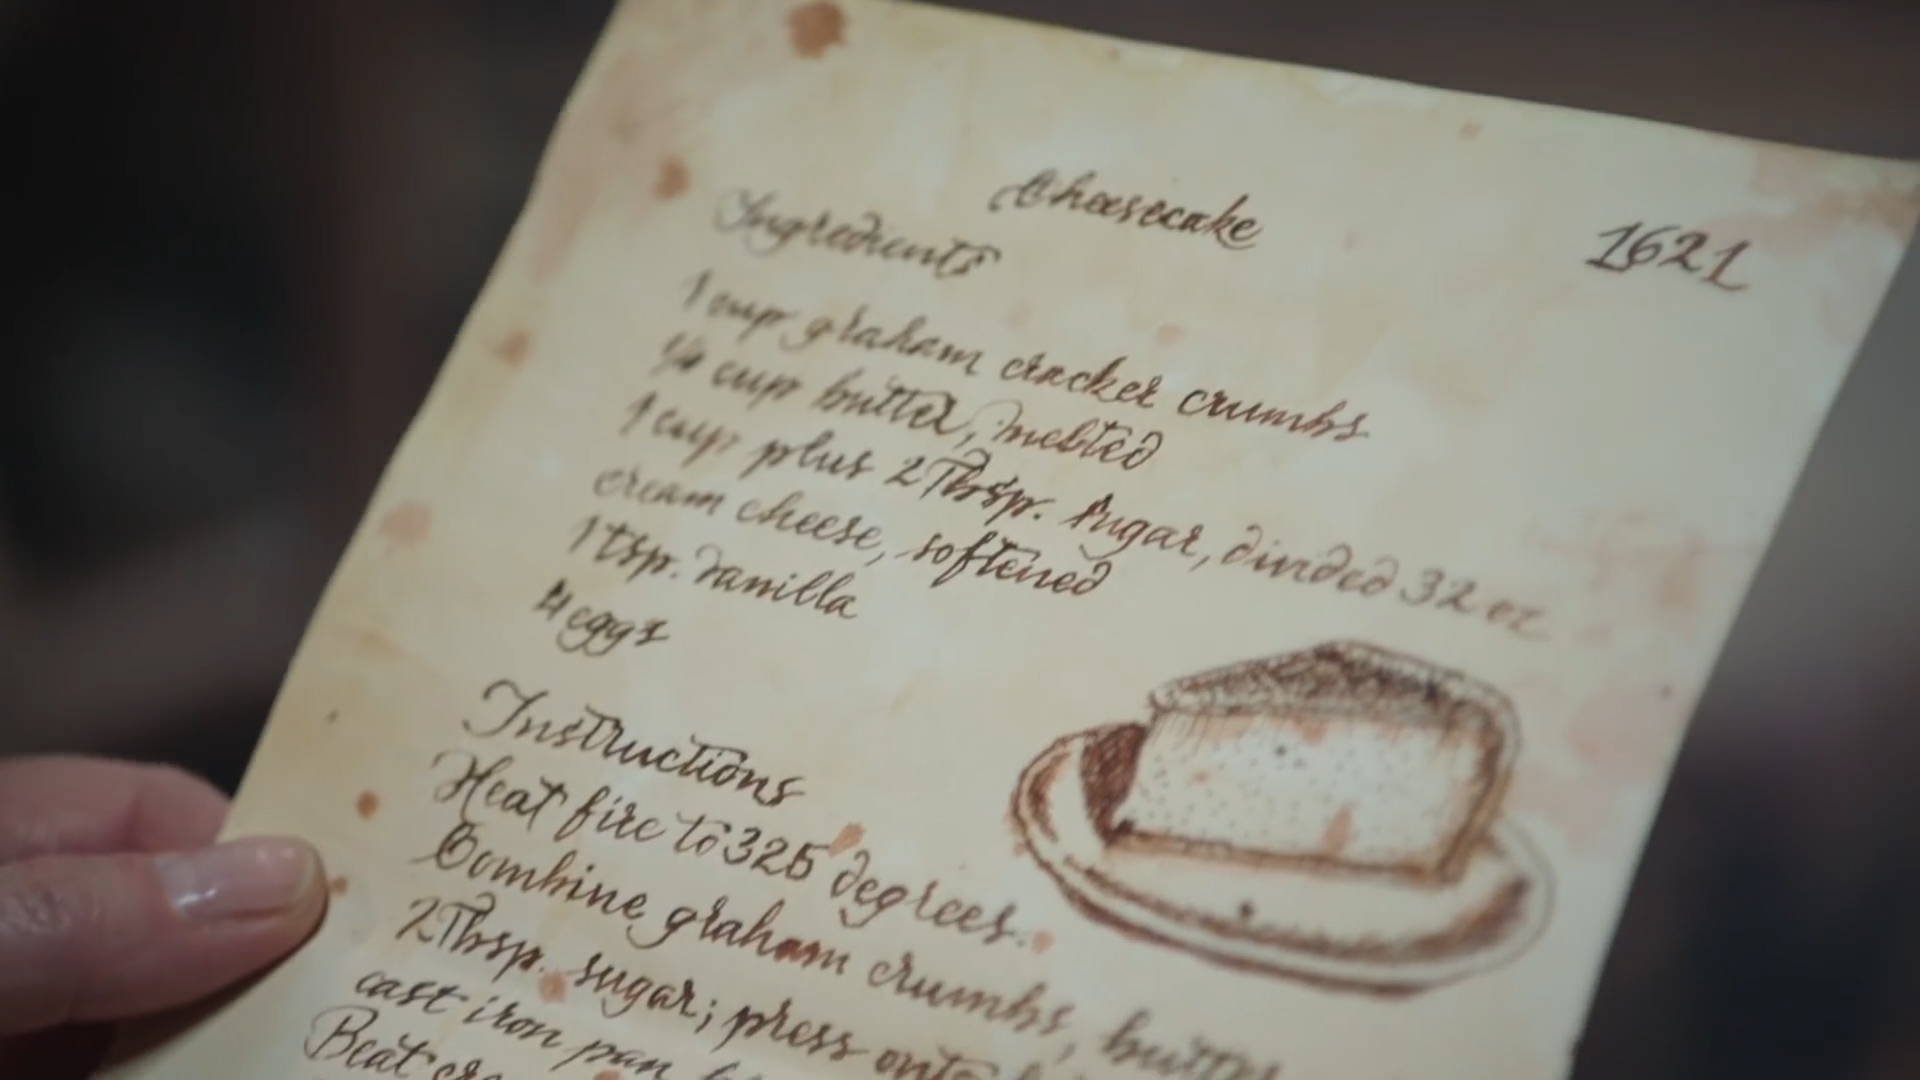 Cheesecake
1621
Ingredients
1 cup graham cracker crumbs
1/4 cup butter, melted
1 cup plus 2 Tbsp. sugar, divided 32 oz
cream cheese, softened
1 tsp. vanilla
4 eggs
Instructions
Heat fire to 325 degrees.
Combine graham crumbs, butter
2 Tbsp. sugar; press onto
cast iron pan
Beat